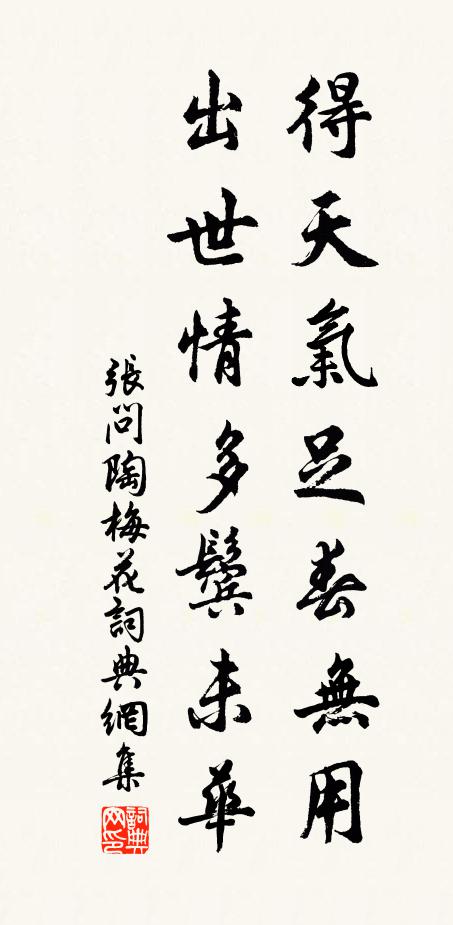 得天氣足春無用
出世情多鬓未華
張問陶梅花詞典網集
詞典网印